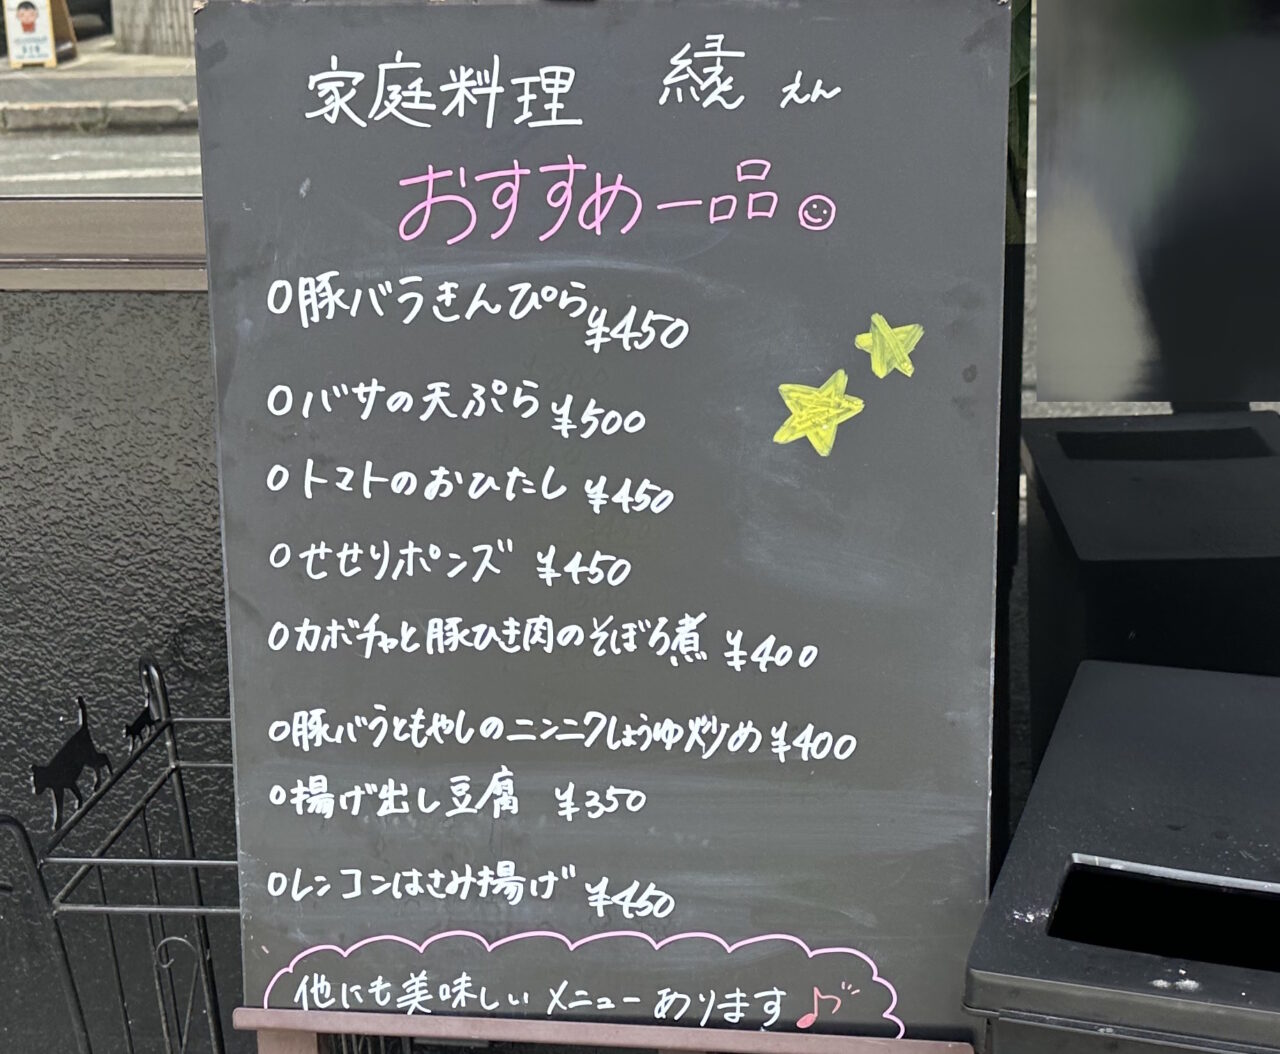 家庭料理 縁 えん
おすすめ一品
○豚バラきんぴら ¥450
○バサの天ぷら ¥500
○トマトのおひたし ¥450
○せせりポンズ ¥450
○カボチャと豚ひき肉のそぼろ煮 ¥400
○豚バラともやしのニンニクしょうゆ炒め ¥400
○揚げ出し豆腐 ¥350
○レンコンはさみ揚げ ¥450
他にも美味しいメニューあります♪